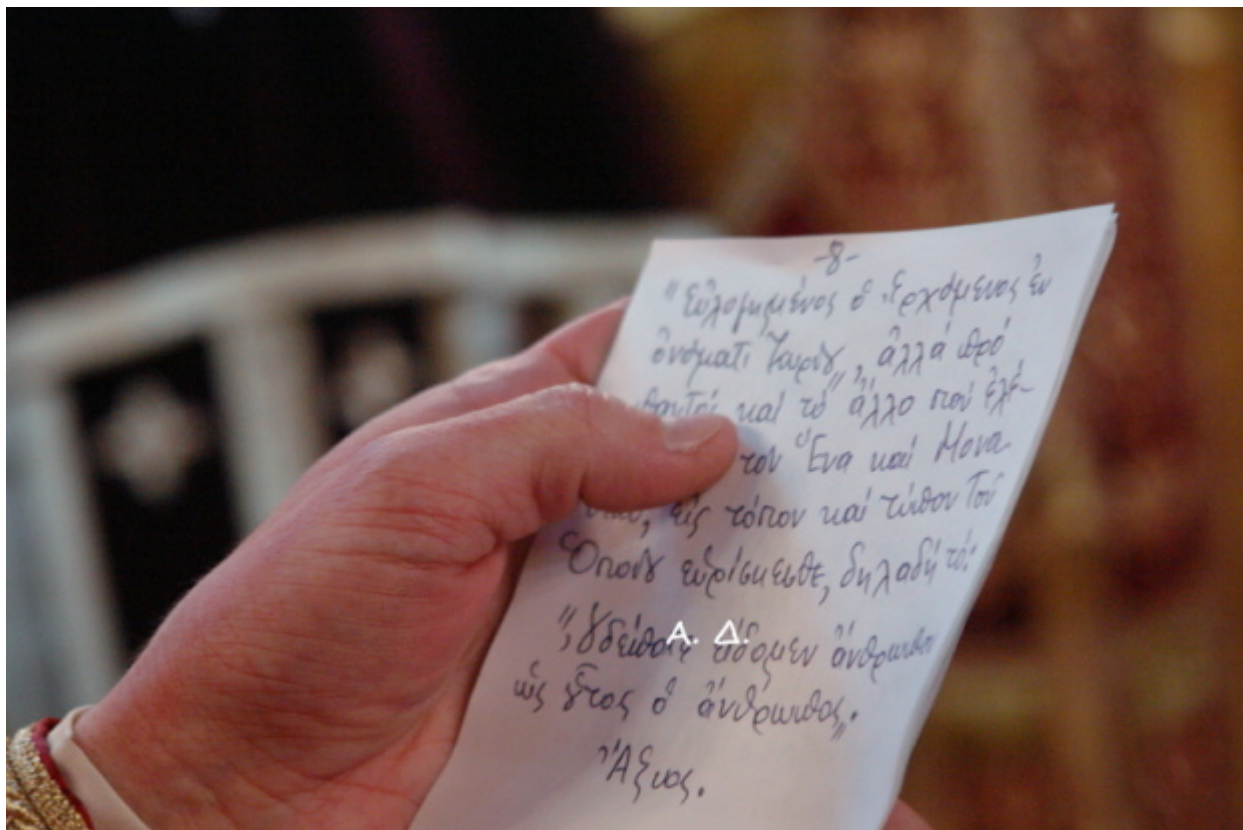 -8-
"Εὐλογημένος ὁ Ἐρχόμενος ἐν
ὀνόματι Κυρίου", ἀλλά πρό
καί τό ἄλλο πού ἐλέ-
τόν Ἕνα καί Μονα-
εἰς τόπον καί τύπον Τοῦ
Ὁποίου εὑρίσκεσθε, δηλαδή τό:
εἴδομεν ἄνθρωπον
ὡς οὗτος ὁ ἄνθρωπος".
Ἄξιος.
Α. Δ.